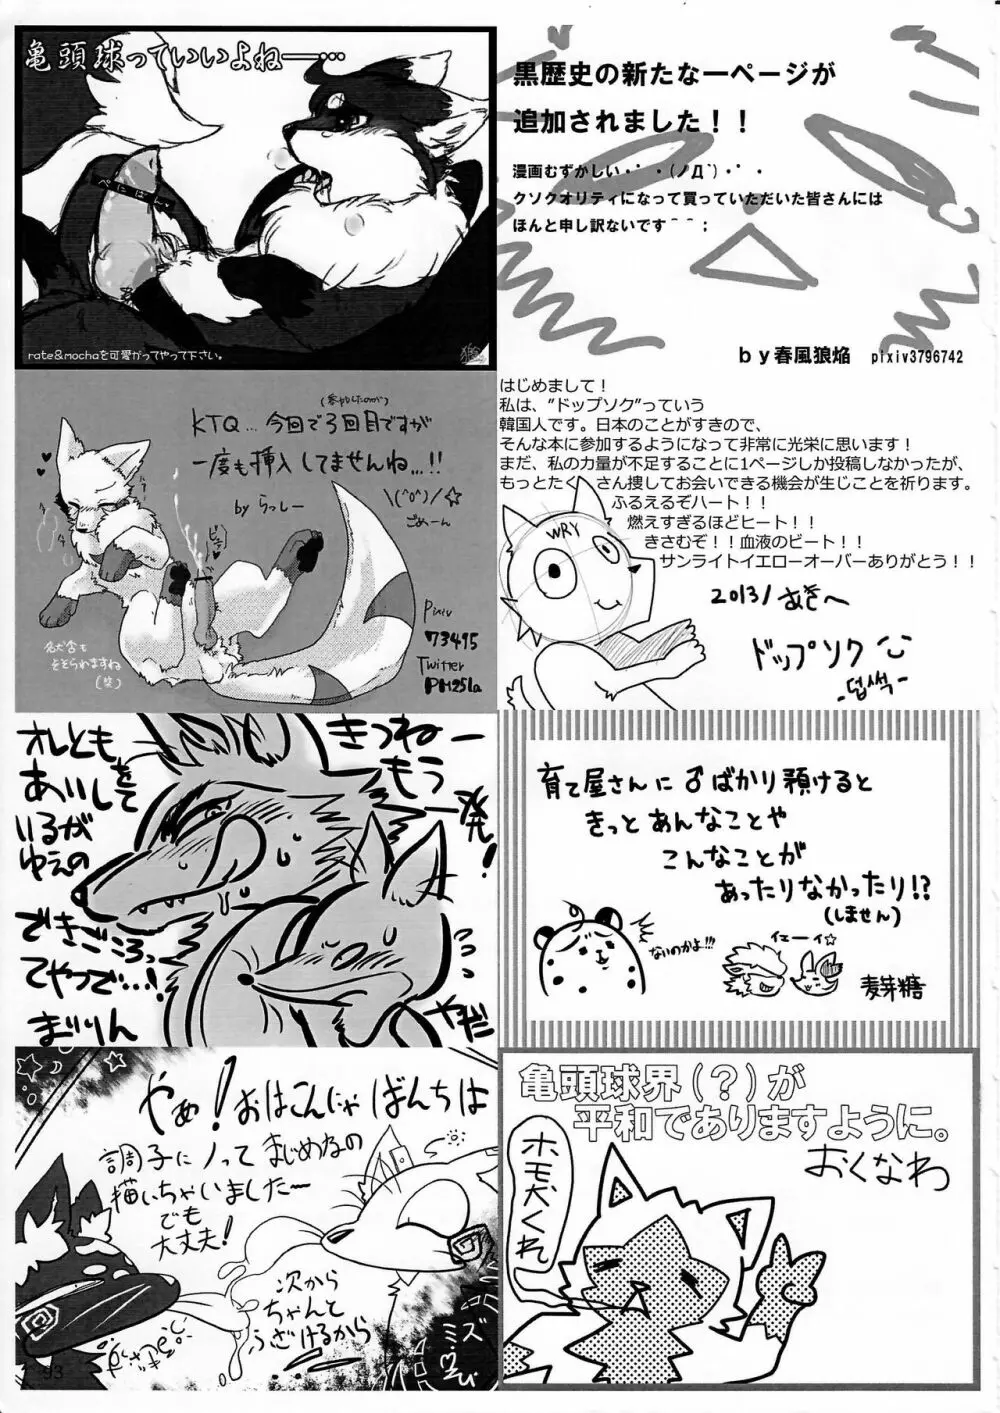 亀頭球っていいよねー…
ぺにば
rate&mochaを可愛がってやって下さい。
黒歴史の新たな一ページが
追加されました！！
漫画むずかしい・゜・(ノД`)・゜・
クソクオリティになって買っていただいた皆さんには
ほんと申し訳ないです＾＾；
by春風狼焔 pixiv3796742
(参加したのが)
KTQ…今回で3回目ですが
一度も挿入してませんね…!!
by らっしー
\(^o^)/☆
ごめーん
Pixiv
73495
Twitter
PM25la
はじめまして！
私は、”ドップソク”っていう
韓国人です。日本のことがすきので、
そんな本に参加するようになって非常に光栄に思います！
まだ、私の力量が不足することに1ページしか投稿しなかったが、
もっとたくさん捜してお会いできる機会が生じことを祈ります。
ふるえるぞハート！！
燃えすぎるほどヒート！！
きさむぞ！！血液のビート！！
サンライトイエローオーバーありがとう！！
WRY
2013/あきへ
ドップソク
-덥썩-
きつねー
もう
一発!
オレとも
あいしを
している
が
ゆえの
できごころっ
てやつで…!
まじりん
やだ
育て屋さんに♂ばかり預けると
きっとあんなことや
こんなことが
あったりなかったり!?
(しません)
ないのかよ!!!
イエーイ☆
麦芽糖
やぁ!おはこんにゃばんちは
調子にノってまじめなの
描いちゃいました〜
でも
大丈夫!
次から
ちゃんと
ふざけるから
93
亀頭球界（？）が
平和でありますように。
おくなわ
ホモ犬くれ